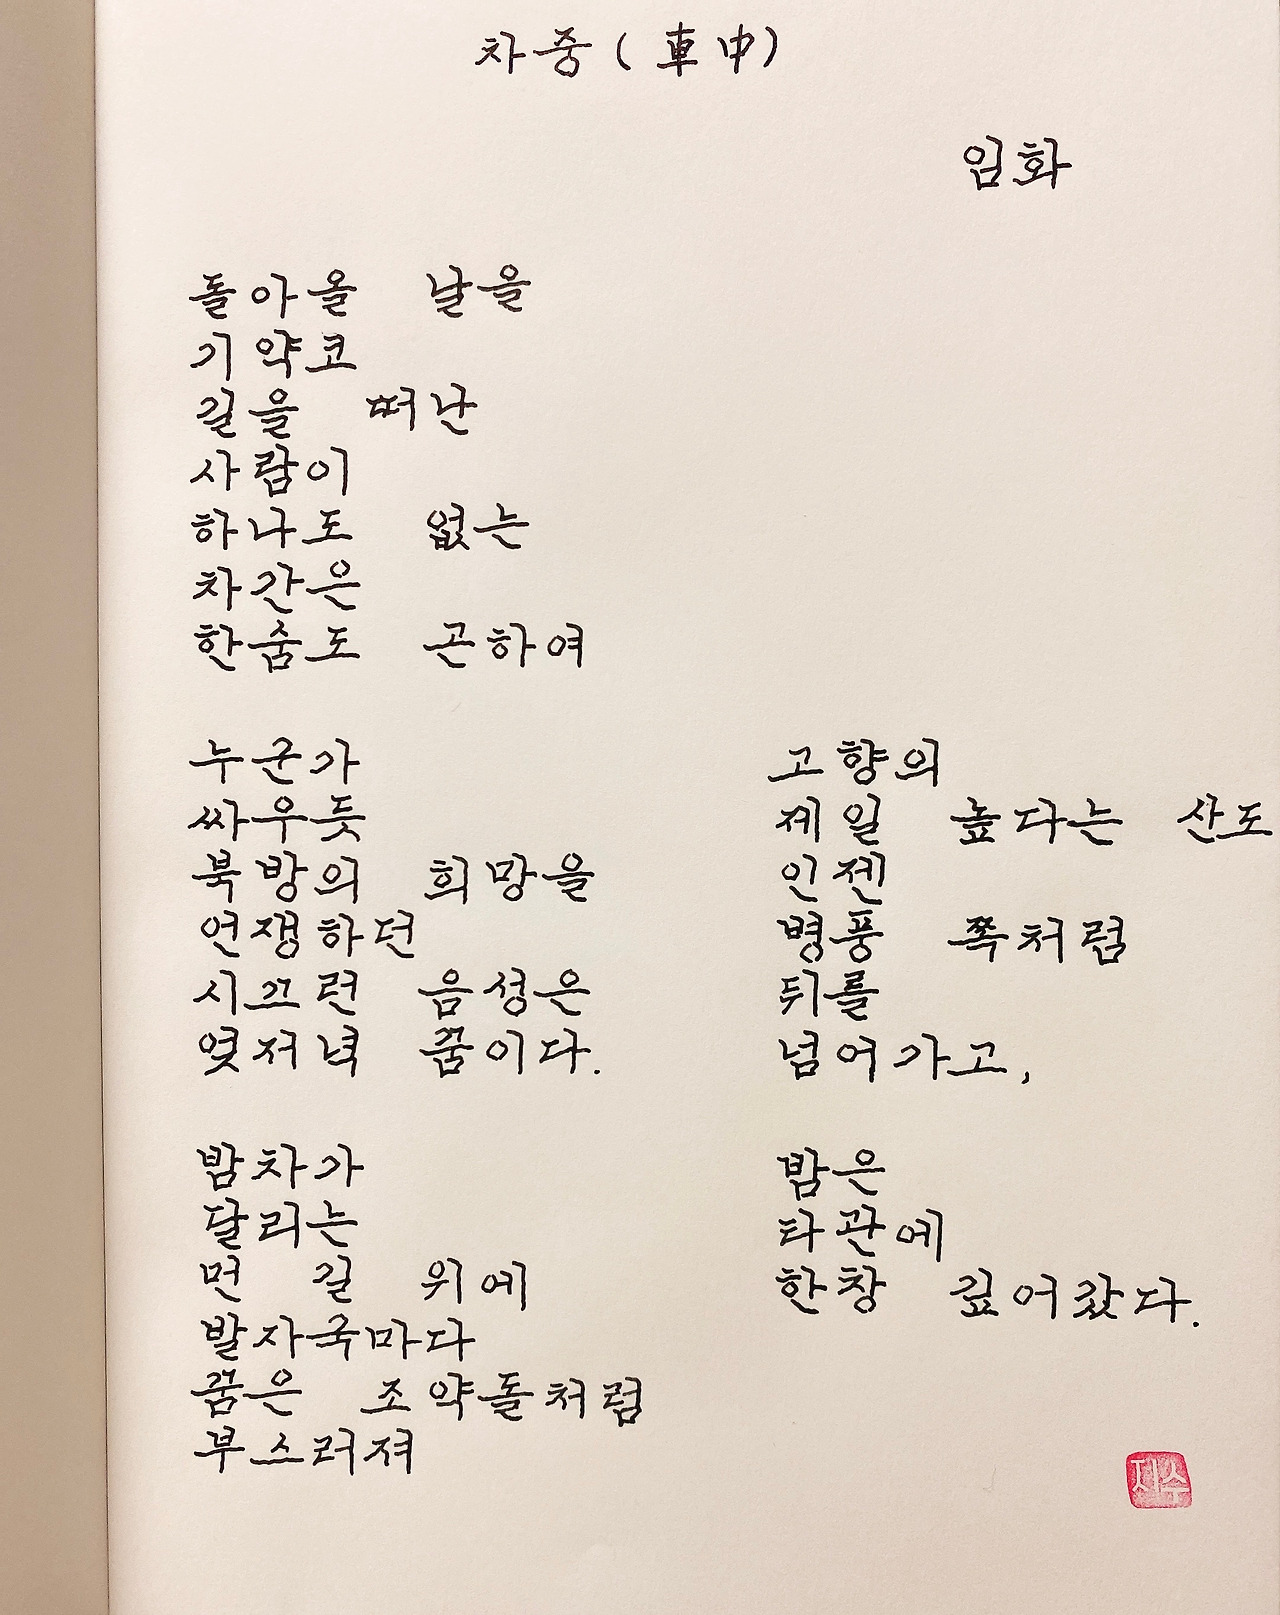 차중(車中)
임화
돌아올 날을
기약코
길을 떠난
사람이
하나도 없는
차간은
한숨도 곤하여
누군가
싸우듯
북방의 희망을
언쟁하던
시끄런 음성은
엿저녁 꿈이다.
밤차가
달리는
먼 길 위에
발자국마다
꿈은 조약돌처럼
부스러져
고향의
제일 높다는 산도
인젠
병풍 쪽처럼
뒤를
넘어가고,
밤은
타관에
한창 깊어갔다.
재수